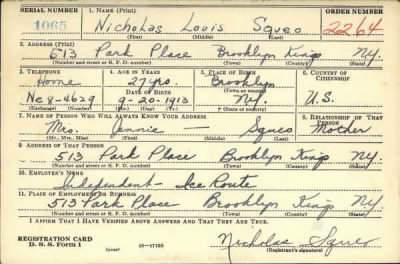 SERIAL NUMBER 1. NAME (Print) ORDER NUMBER
1065 Nicholas Louis Squeo 2264
(First) (Middle) (Last)
2. ADDRESS (Print)
513 Park Place Brooklyn Kings N.Y.
(Number and street or R. F. D. number) (Town) (County) (State)
3. TELEPHONE 4. AGE IN YEARS 5. PLACE OF BIRTH 6. COUNTRY OF CITIZENSHIP
Home 27 yrs. Brooklyn
DATE OF BIRTH (Town or county)
Ne 8-4629 9-20-1913 N.Y. U.S.
(Exchange) (Number) (Mo.) (Day) (Yr.) (State or country)
7. NAME OF PERSON WHO WILL ALWAYS KNOW YOUR ADDRESS 8. RELATIONSHIP OF THAT PERSON
Mrs. Annie — Squeo Mother
(Mr., Mrs., Miss) (First) (Middle) (Last)
9. ADDRESS OF THAT PERSON
513 Park Place Brooklyn Kings N.Y.
(Number and street or R. F. D. number) (Town) (County) (State)
10. EMPLOYER'S NAME
Independent - Ice Route
11. PLACE OF EMPLOYMENT OR BUSINESS
513 Park Place Brooklyn Kings N.Y.
(Number and street or R. F. D. number) (Town) (County) (State)
I AFFIRM THAT I HAVE VERIFIED ABOVE ANSWERS AND THAT THEY ARE TRUE.
REGISTRATION CARD
D. S. S. Form 1 (over) 16-17105 Nicholas Squeo
(Registrant's signature)